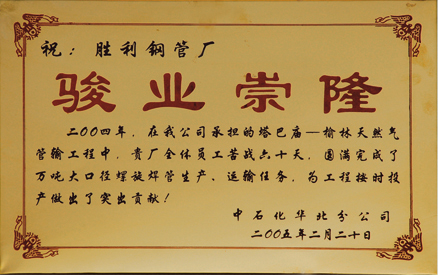 祝：胜利钢管厂
骏业崇隆
二〇〇四年，在我公司承担的塔巴庙—榆林天然气
管输工程中，贵厂全体员工苦战六十天，圆满完成了
万吨大口径螺旋焊管生产、运输任务，为工程按时投
产做出了突出贡献！
中石化华北分公司
二〇〇五年二月二十日